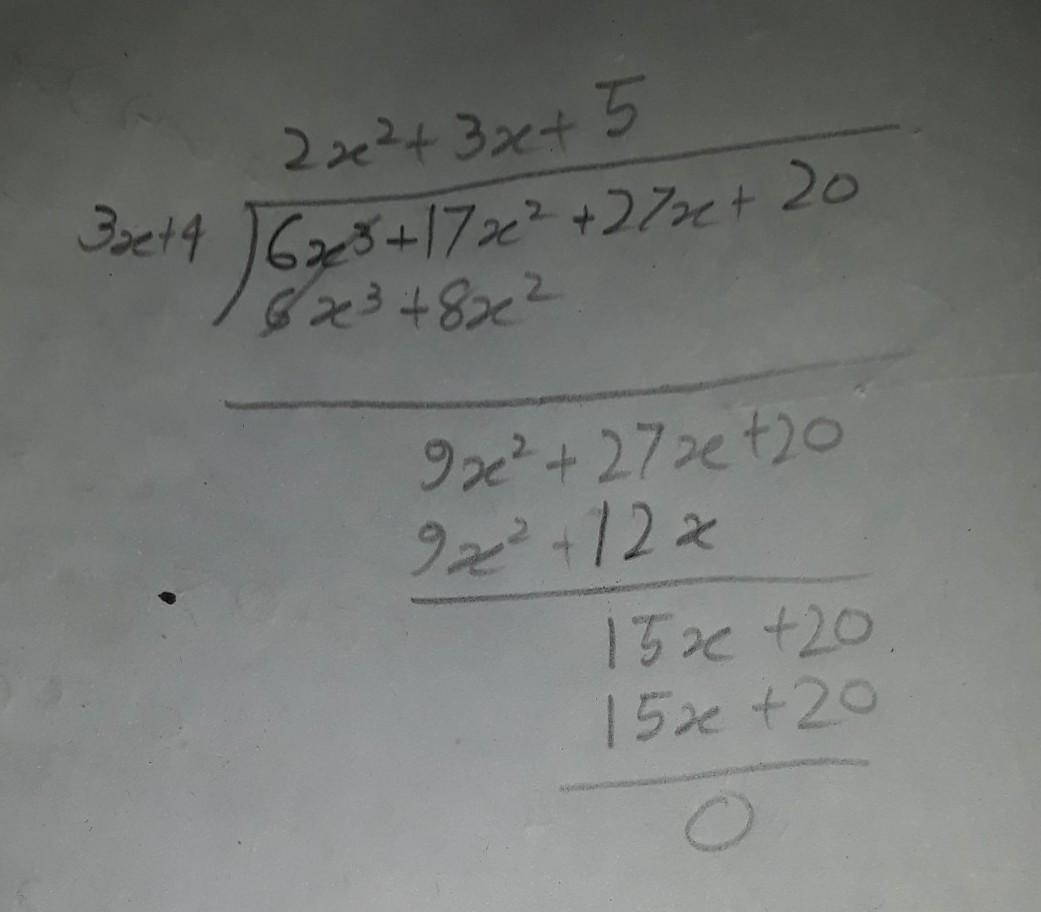 2x² + 3x + 5
3x+4 )6x³ +17x² +27x + 20
6x³ +8x²
9x² + 27x +20
9x² +12x
15x +20
15x +20
0